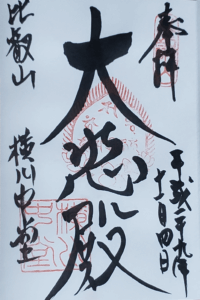 奉拝
平成二十九年
十一月四日
大悲殿
比叡山
横川中堂